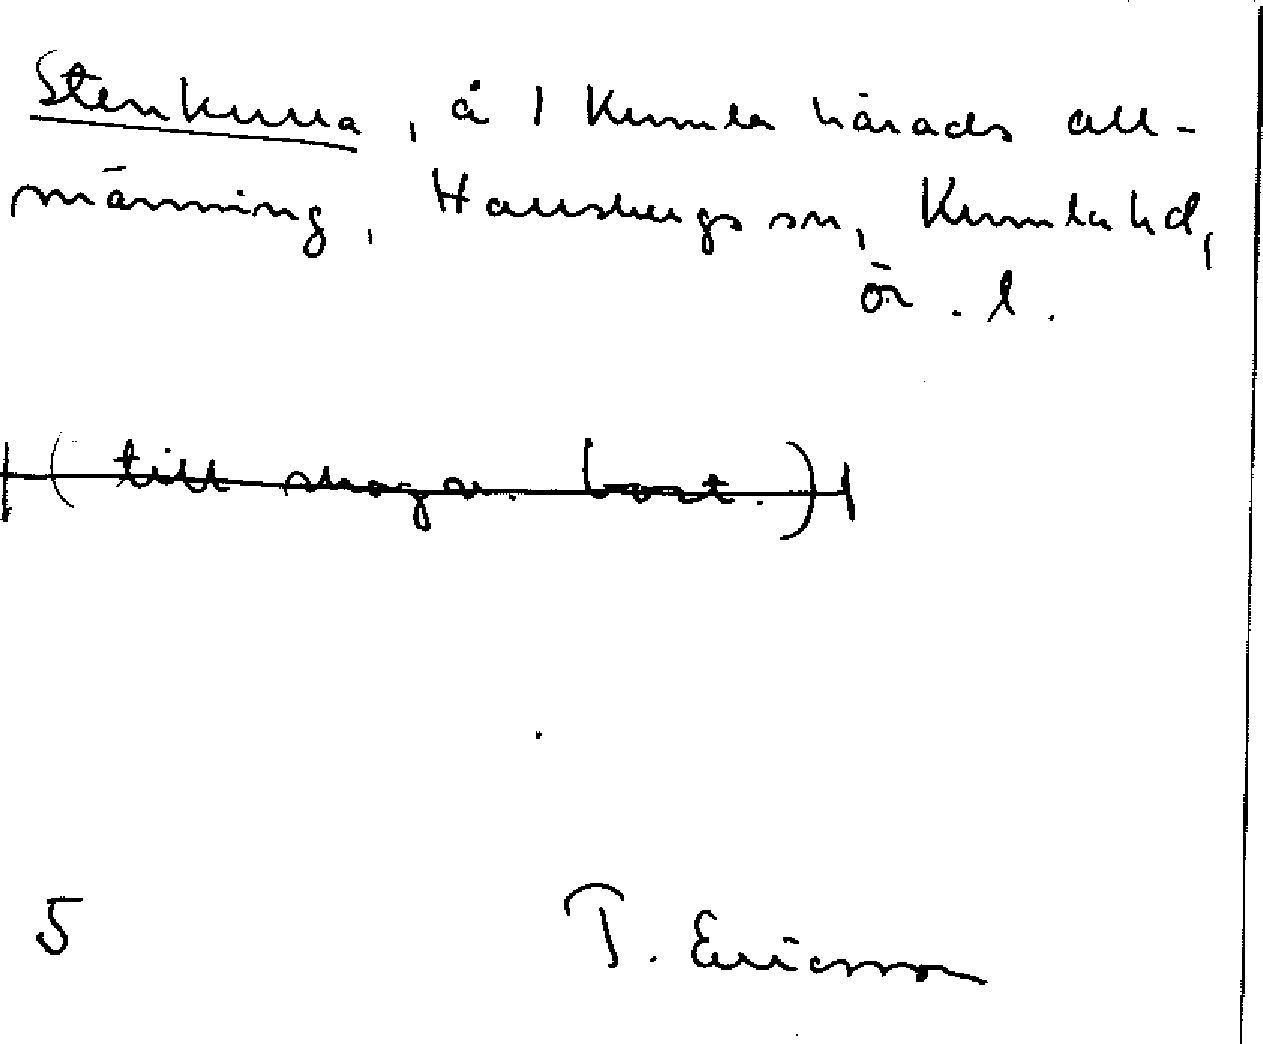 Stenkulla, å 1 Kumla härads all-
männing, Hallsbergs sn, Kumla hd,
ör. l.
( till skogar bort. )
5 T. Ericsson